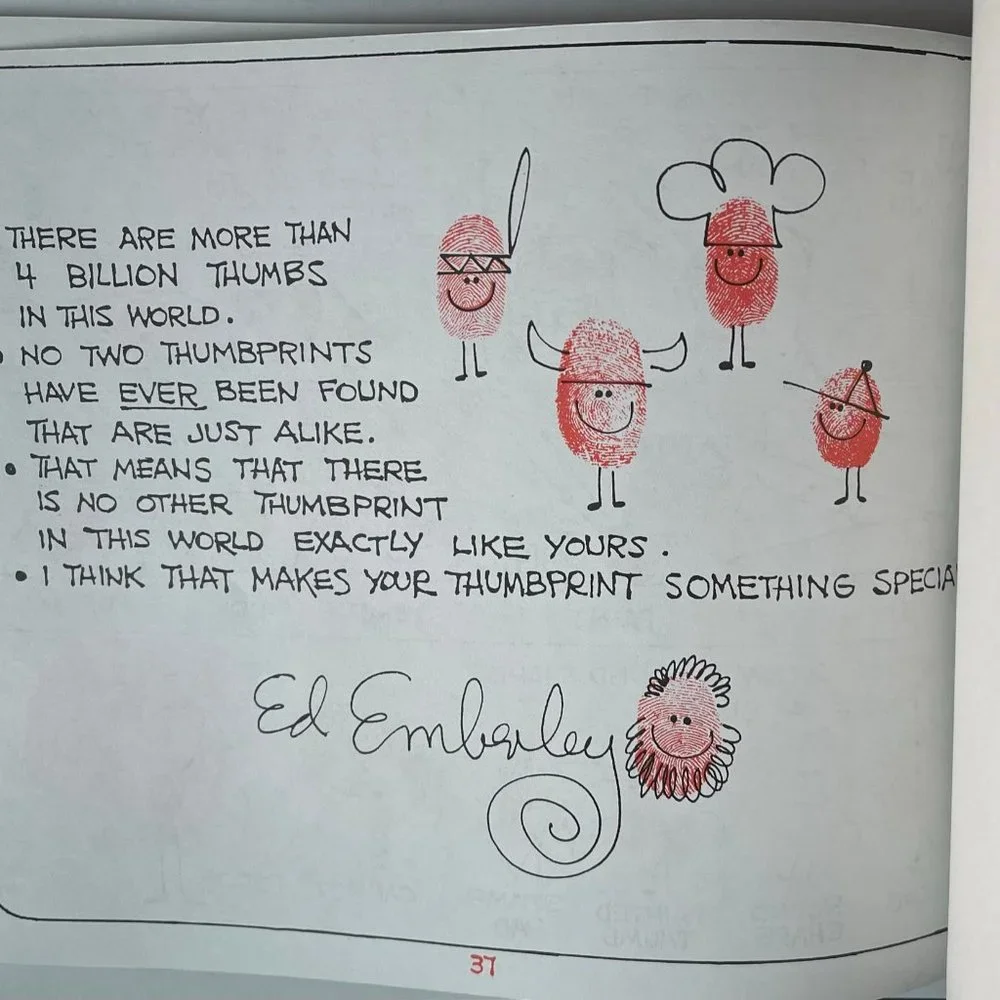 THERE ARE MORE THAN
4 BILLION THUMBS
IN THIS WORLD.
• NO TWO THUMBPRINTS
HAVE EVER BEEN FOUND
THAT ARE JUST ALIKE.
• THAT MEANS THAT THERE
IS NO OTHER THUMBPRINT
IN THIS WORLD EXACTLY LIKE YOURS.
• I THINK THAT MAKES YOUR THUMBPRINT SOMETHING SPECIA
Ed Emberley
37